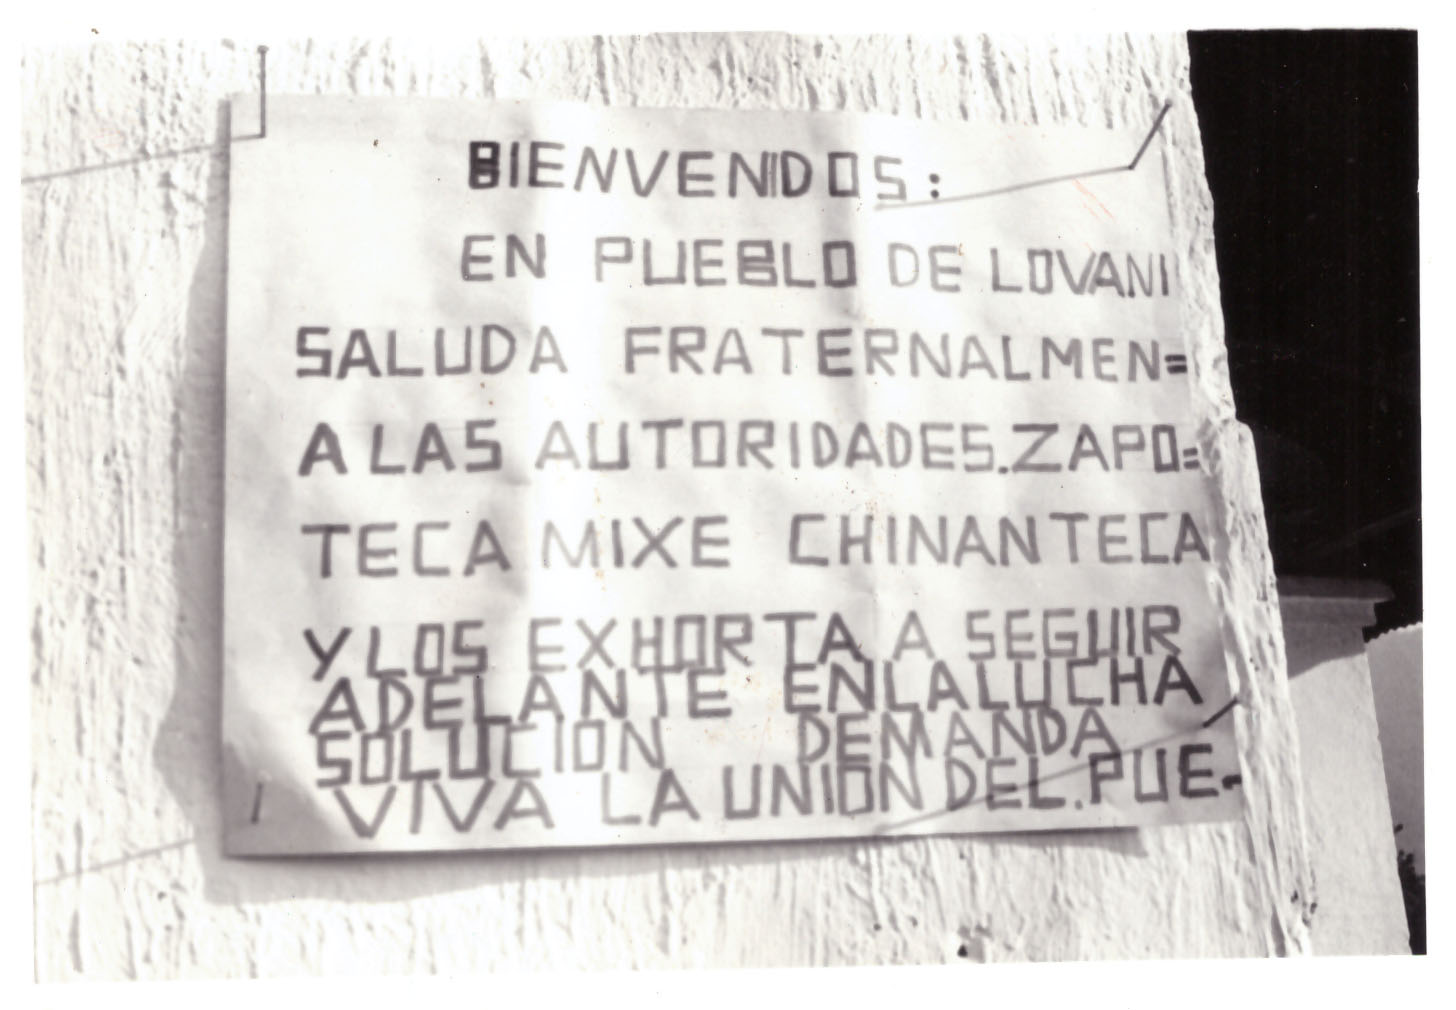 BIENVENIDOS:
EN PUEBLO DE LOVANI
SALUDA FRATERNALMEN=
A LAS AUTORIDADES.ZAPO=
TECA MIXE CHINANTECA
Y LOS EXHORTA A SEGUIR
ADELANTE EN LA LUCHA
SOLUCION DEMANDA
VIVA LA UNION DEL.PUE-